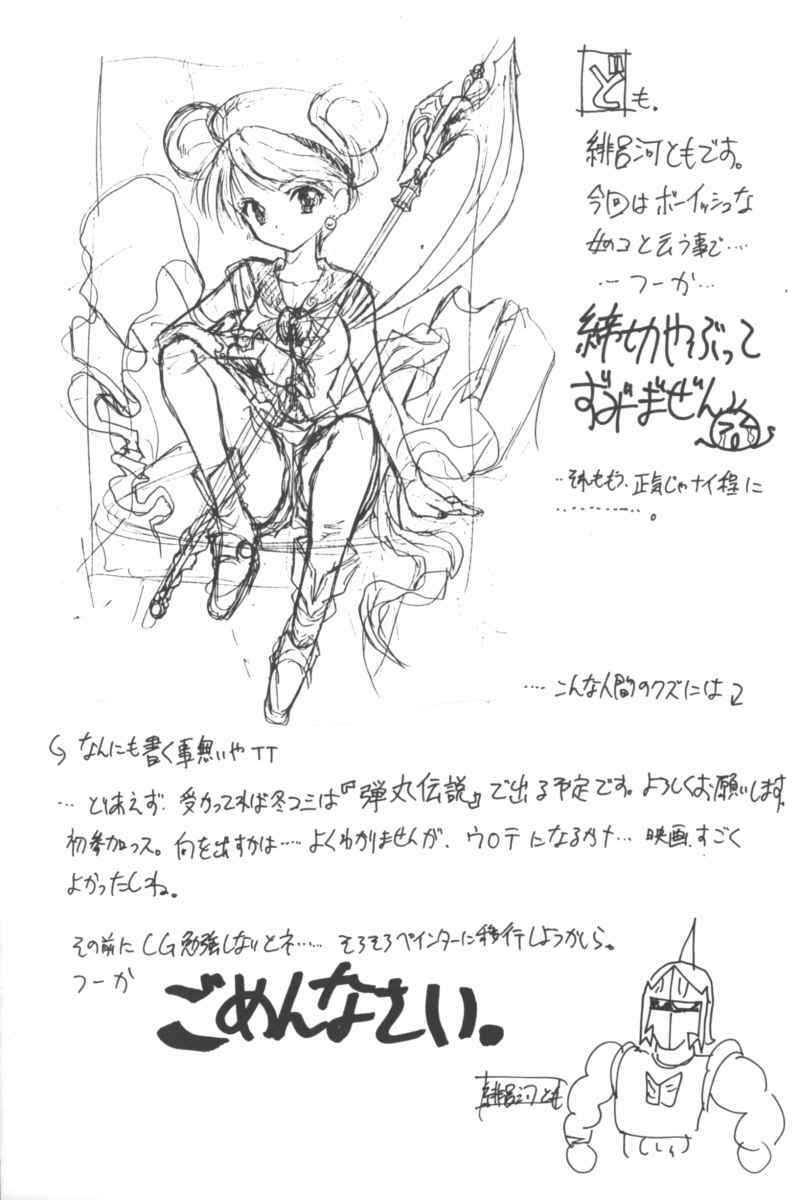 ども。
緋呂河ともです。
今回はボーイッシュな
女のコと云う事で…
…つーか…
締切やぶって
ずみ゛ま゛ぜん
…それももう、正気じゃナイ程に
…………。
…こんな人間のクズには
なんにも書く事無いや TT
… とりあえず、受かってれば冬コミは『弾丸伝説』で出る予定です。よろしくお願いします。
初参加っス。何を出すかは…よくわかりませんが、ウロテになるかナ… 映画、すごく
よかったしね。
その前にCG勉強しないとネ…… そろそろペインターに移行しようかしら。
つーか
ごめんなさい。
緋呂河とも